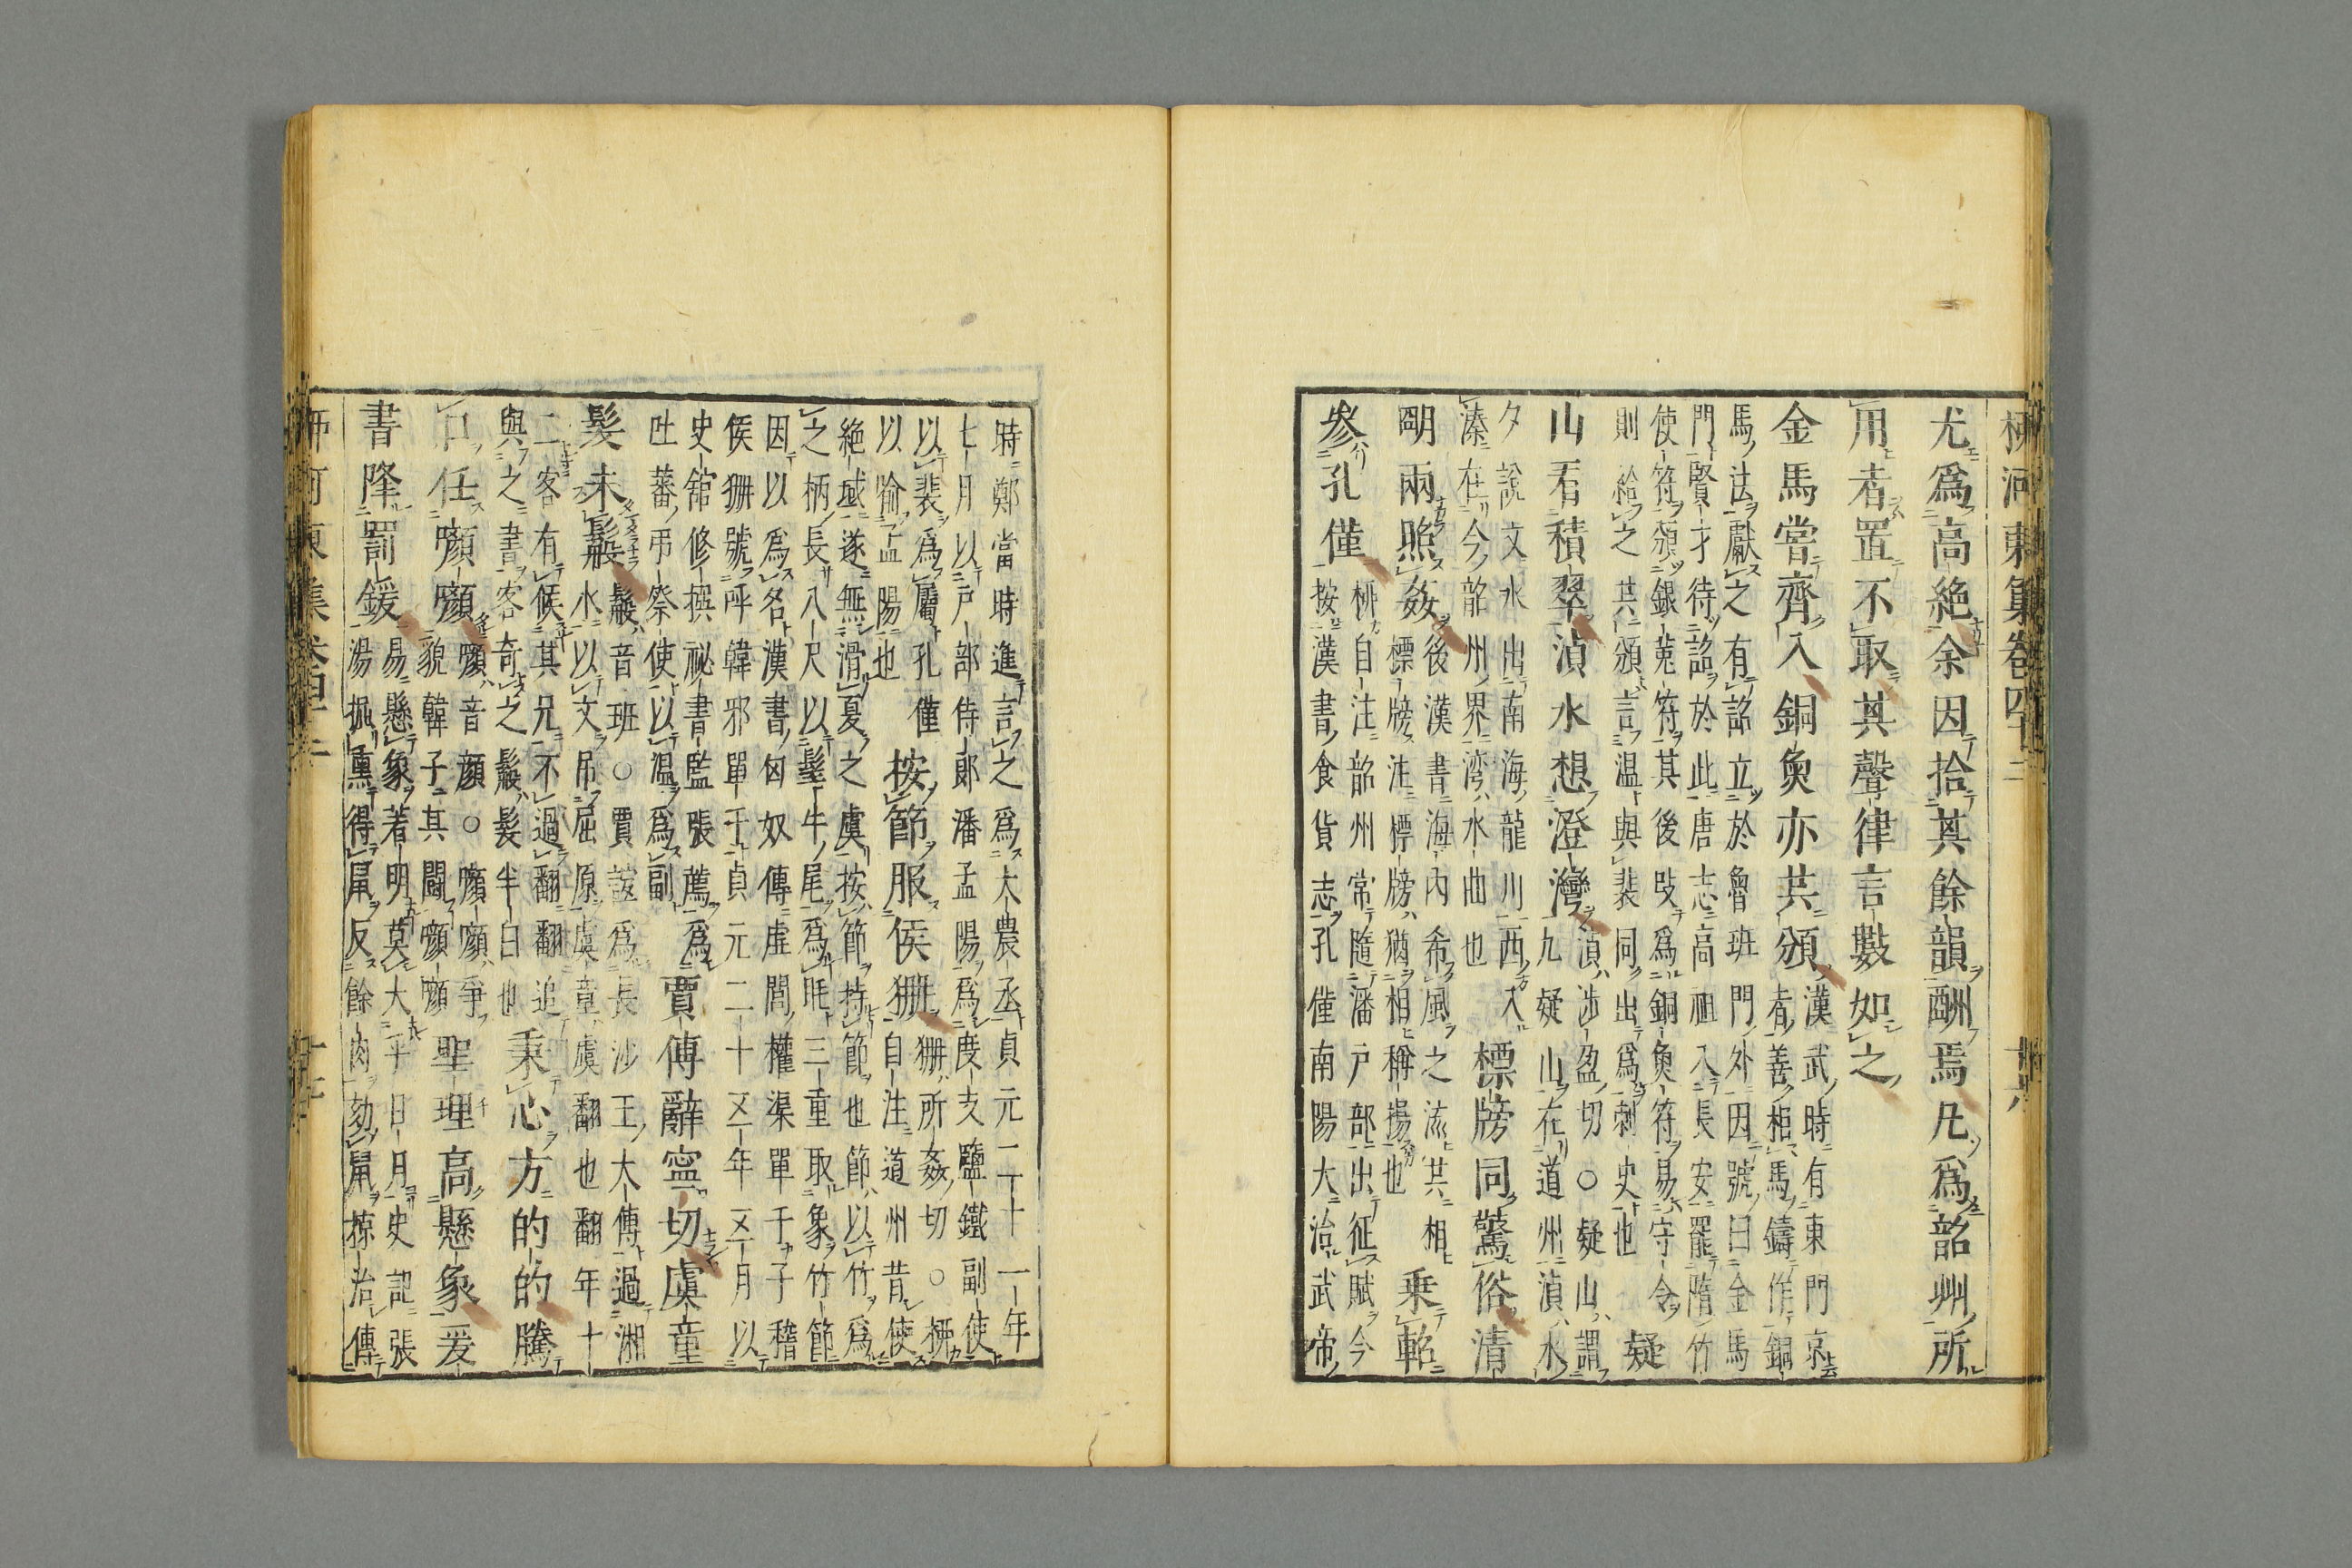 柳河東集卷四十二 十八
尤爲高絶余因拾其餘韻酬焉凡爲韶州所
用者置不取其聲律言數如之
金馬嘗齊入銅魚亦共頒
漢武時有東門京
者善相馬鑄作銅
馬法獻之有詔立於魯班門外因號曰金馬
門賢才待詔於此唐志高祖入長安罷隋竹
使符頒銀菟符其後攺爲銅魚符易守令
則給之其頒言温與裴同出爲刺史也
疑
山看積翠湞水想澄灣
湞涉盈切○疑山謂
九疑山在道州湞水
夕說文水出南海龍川西入
溱在今韶州界湾水曲也
標牓同驚俗清
明兩照姦
後漢書海内希風之流共相
標牓注標牓猶相稱揚也
乗軺
參孔僅
柳自注韶州常隨潘戶部出征賦今
按漢書食貨志孔僅南陽大治武帝
時鄭當時進言之爲大農丞貞元二十一年
七月以戸部侍郎潘孟陽爲度支鹽鐵副使
以裴爲屬孔僅
以喻孟陽也
按節服侯狦
狦所姦切○柳
自注道州昔使
絶域遂無滑夏之虞按節持節也節以竹爲
之柄長八尺以髦牛尾爲眊三重取象竹節
因以爲名漢書匈奴傳虚閭權渠單于子稽
侯狦號呼韓邪單于貞元二十又年又月以
史舘修撰祕書監張薦爲
吐蕃弔祭使以温爲副
賈傅辭寧切虞童
髮未鬗
鬗音班○賈誼爲長沙王大傅過湘
水以文吊屈原虞童虞翻也翻年十
二客有候其兄不過翻翻追
與之書客奇之鬗髮半白也
秉心方的的騰
口任㘖㘖
㘖音顏○㘖㘖爭
貌韓子其鬪㘖㘖
聖理高懸象爰
書降罰鍰
易懸象著明莫大乎日月史記張
湯掘熏得鼠反餘肉劾鼠掠治傳